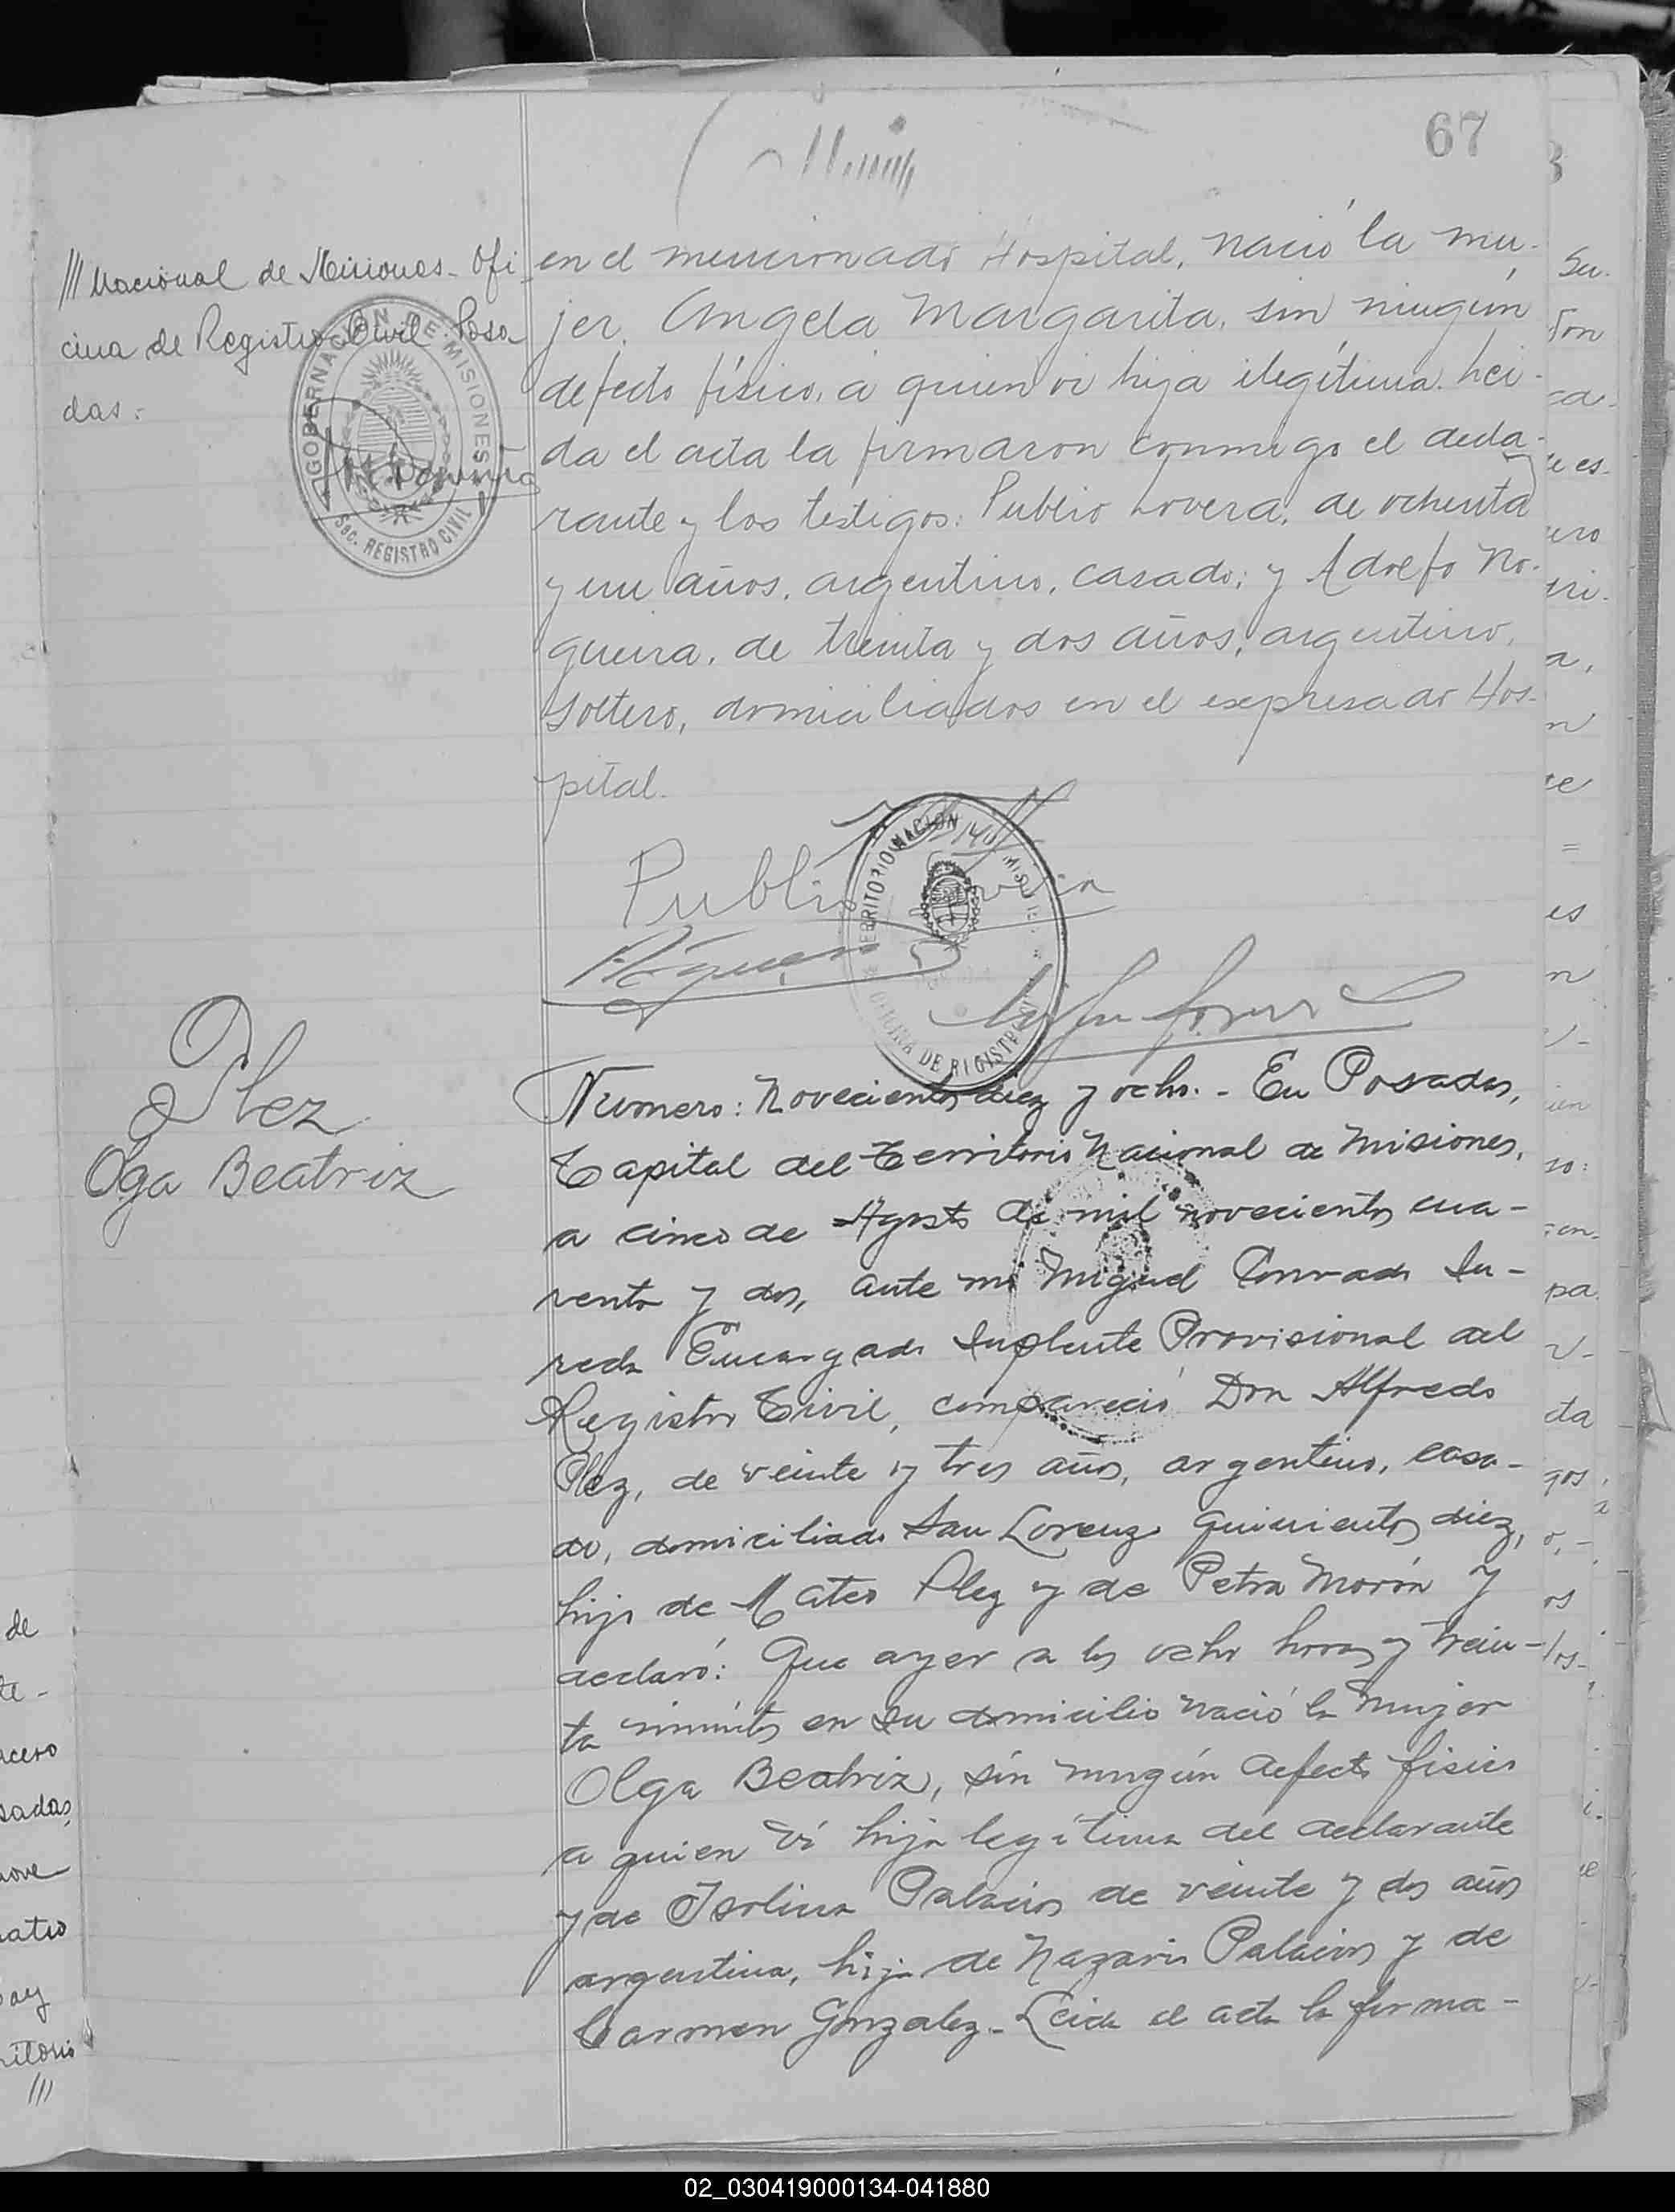 67
/// Nacional de Misiones - Ofi
cina de Registro Civil Posa
das:
GOBERNACIÓN DE MISIONES
Sec. REGISTRO CIVIL
en el mencionado Hospital, nació la mu-
jer, Angela Margarita, sin ningún
defecto físico, a quien vi hija ilegítima. Lei-
da el acta la firmaron conmigo el decla-
rante y los testigos: Publio Lovera, de ochenta
y un años, argentino, casado; y Adolfo No-
gueira, de treinta y dos años, argentino,
soltero, domiciliados en el expresado Hos-
pital.
Publio Lovera
TERRITORIO NACION MIS
OFICINA DE REGISTRO
Plez
Olga Beatriz
Numero: Novecientos diez y ocho. - En Posadas,
Capital del Territorio Nacional de Misiones,
a cinco de Agosto de mil novecientos cua-
renta y dos, ante mi Miguel Conrado
Encargado Suplente Provisional del
Registro Civil, compareció Don Alfredo
Plez, de veinte y tres años, argentino, casa-
do, domiciliado San Lorenzo quinientos diez,
hijo de Mateo Plez y de Petra Morón y
declaró: Que ayer a las ocho horas y trein-
ta minutos en su domicilio nació la mujer
Olga Beatriz, sin ningún defecto físico
a quien vi hija legítima del declarante
y de Isolina Palacios de veinte y dos años
argentina, hija de Nazario Palacios y de
Carmen Gonzalez. - Leida el acta la firma-
de
te-
acero
sadas,
nove
atro
ay
ritorio
///
02_030419000134-041880